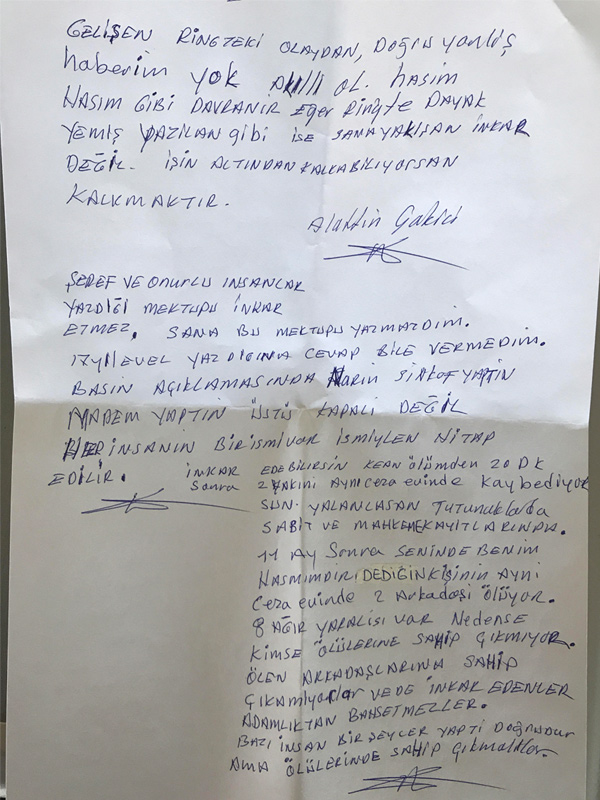 GELİŞEN RİNGTEKİ OLAYDAN, DOĞRU yanlış
haberim yok AKIllI OL. hasim
HASIM GİBİ DAVRANIR Eğer Ringte DAYAK
YEMİŞ YAZILAN gibi İSE SANA YAKIŞAN İNKAR
DEĞİL. İŞİN ALTINDAN KALKABİLİYORSAN
KALKMAKTIR.
Alattin Çakici
ŞEREF VE ONURLU INSANLAR
YAZDIĞI MEKTUPU İNKAR
ETMEZ. SANA BU MEKTUPU YAZMAZDIM.
17 yıl EVEL YAZDIGINA CEVAP BİLE VERMEDİM.
BASIN AÇIKLAMASINDA Narin SİNKOF YAPTIN
MADEM YAPTIN ÜSTÜ KAPALI DEĞİL
HER İNSANIN BİR ismi var İSMİYLEN HİTAP
EDİLİR. İNKAR EDEBİLİRSİN KEAN ölümden 20 DK
Sonra 2 YAKINI AYNI Ceza evinde kaybediyor
SUN. YALANLASAN Tutunuklarda
SABİT VE MAHKEME KAYITLARINDA.
11 Ay Sonra SENINDE BENIM
HASMIMDIR DEDİGİN Kişinin Ayni
Ceza evinde 2 Arkadaşı ÖLÜYOR.
8 AĞIR YARALISI VAR Nedense
KİMSE ÖLÜLERINE SAHİP ÇIKMIYOR.
ÖLEN ARKADAŞLARINA SAHİP
ÇIKAMIYORlar VE DE İNKAR EDENLER
ADAMLIKTAN BAHSETMEZLER.
BAZI INSAN BİR ŞEYLER YAPTI DOĞRUDUR
AMA ÖLÜLERINDE SAHİP ÇIKmalılar.